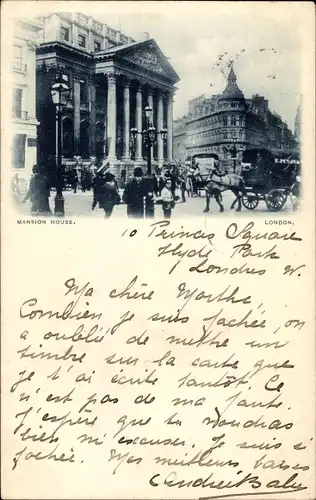 MANSION HOUSE.
LONDON.
10 Princes Square
Hyde Park
Londres W.
Ma chère Marthe,
Combien je suis fachée, on
a oublié de mettre un
timbre sur la carte que
je t'ai écrite tantôt. Ce
n'est pas de ma faute.
J'espère que tu voudras
bien m'excuser. Je suis si
fachée. Mes meilleurs baisers